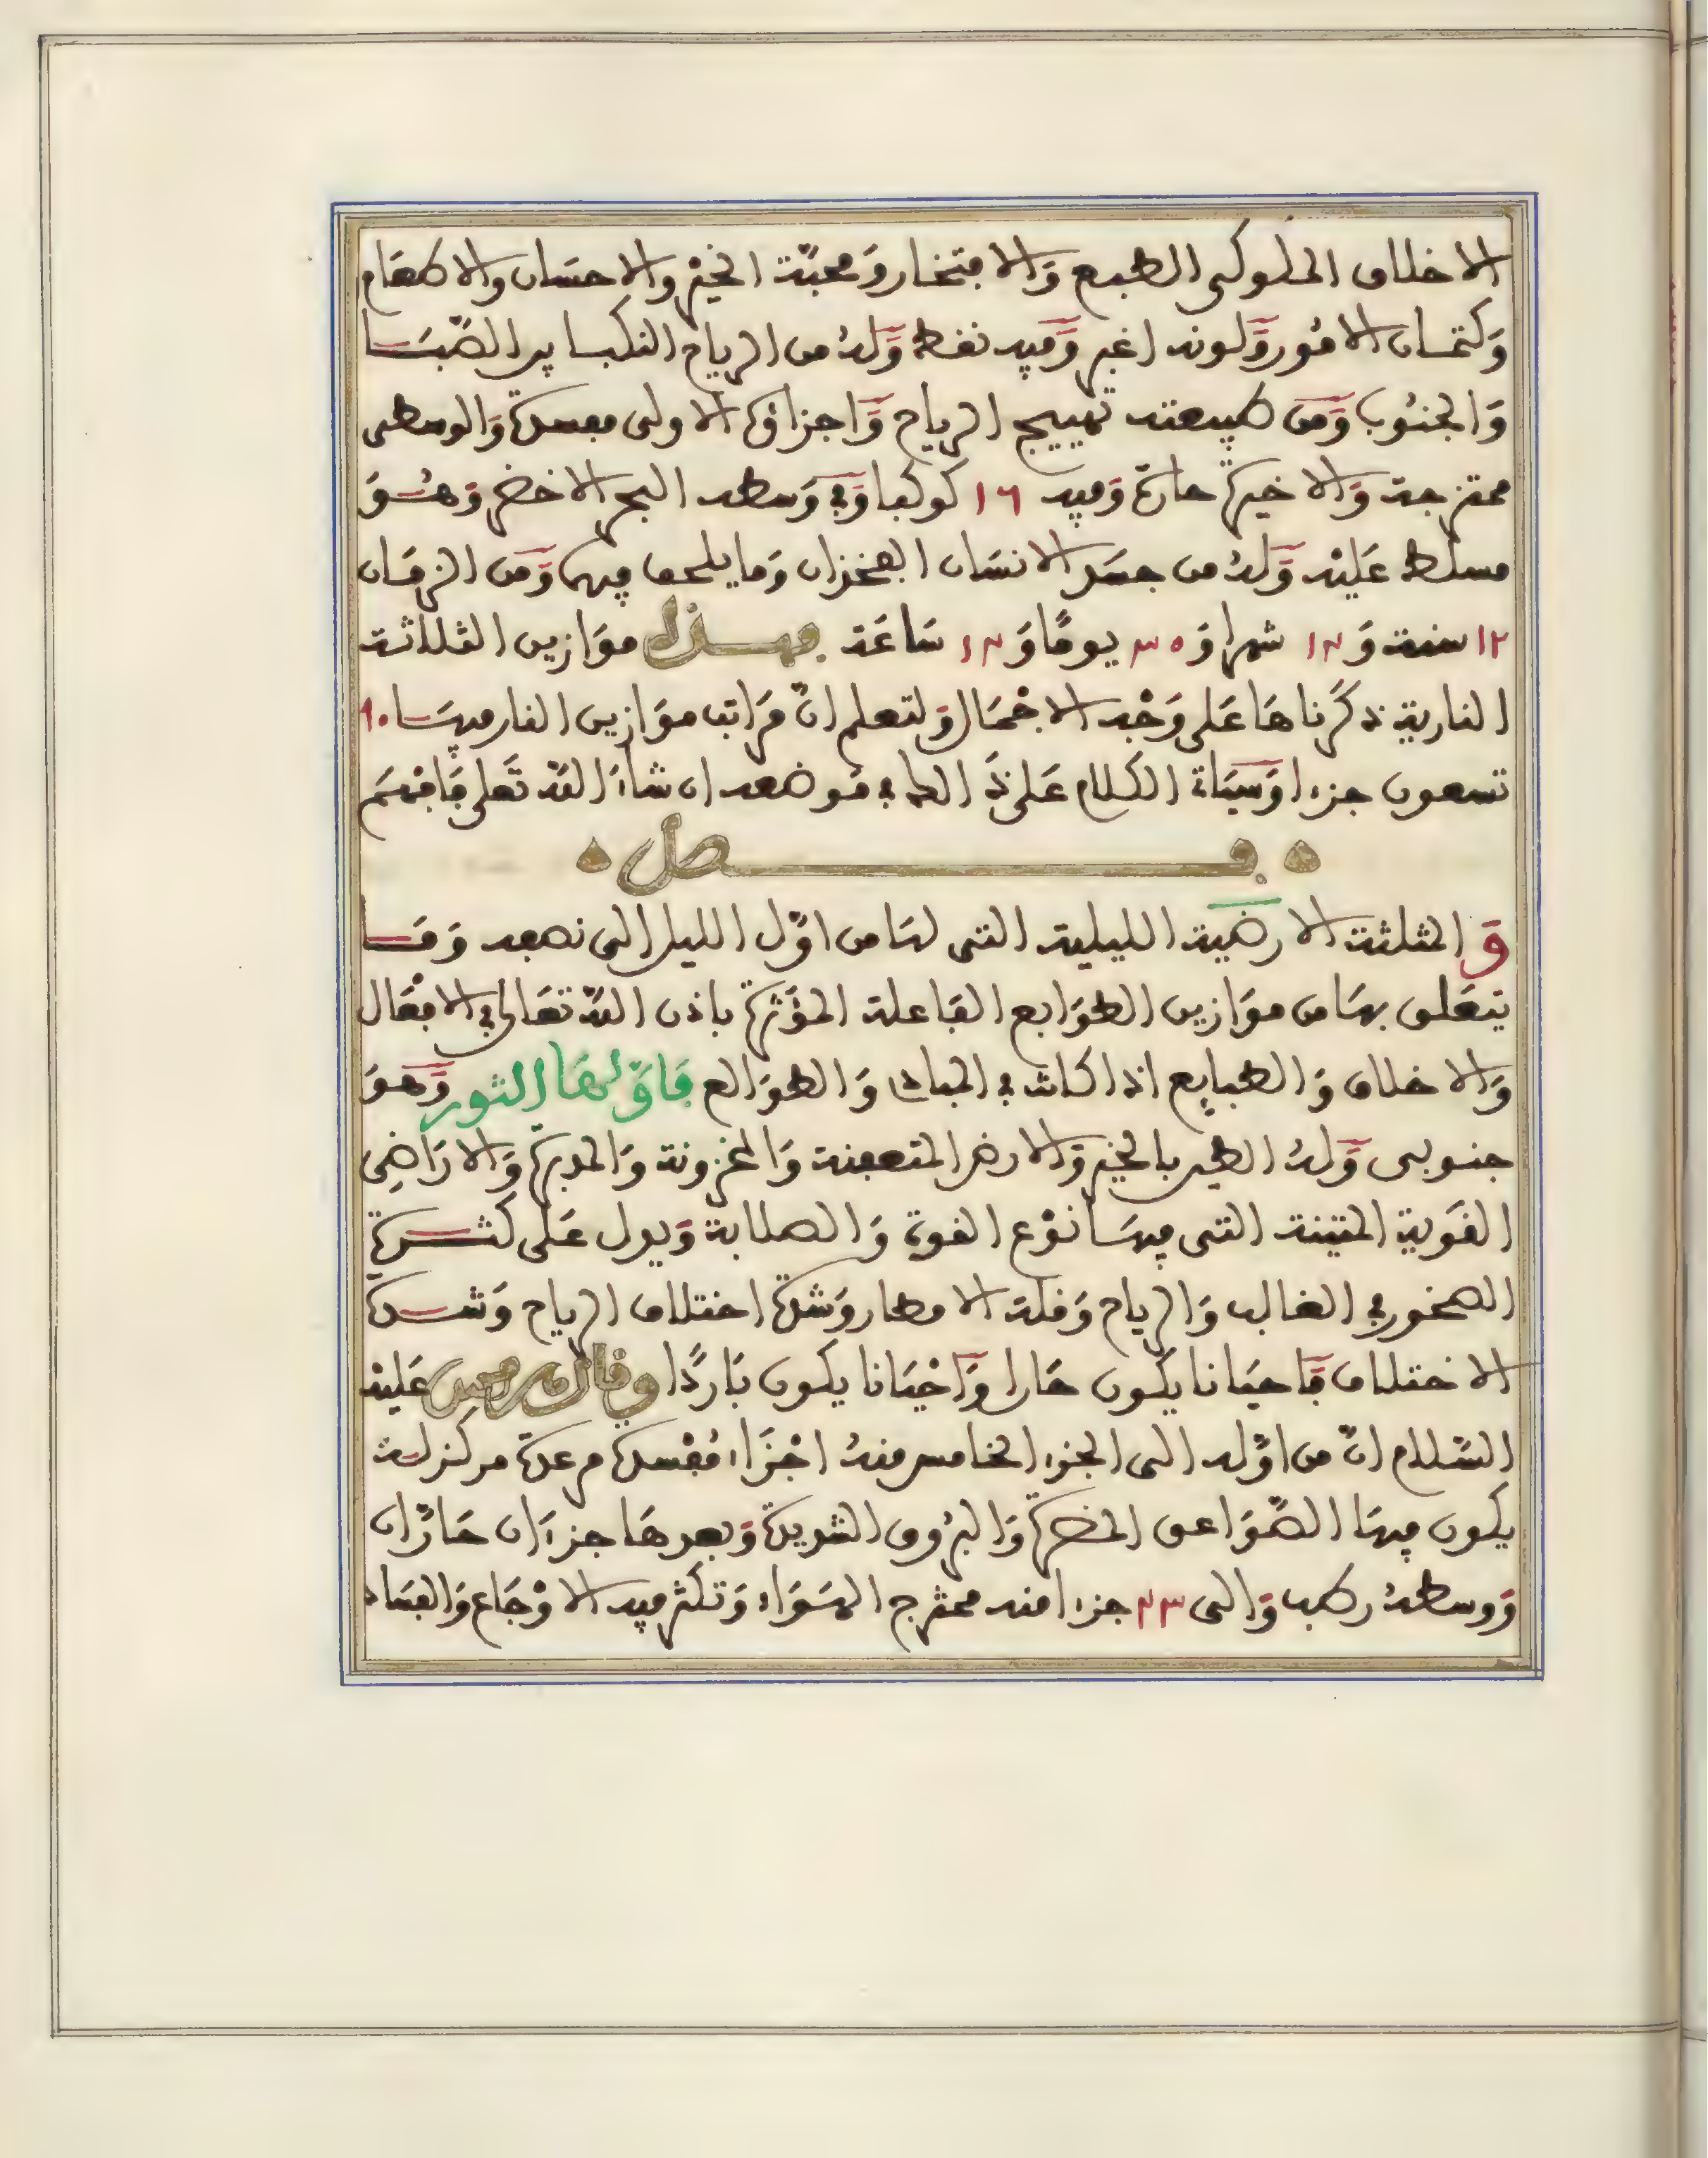 الاخلاق الملوكى الطبع وَالافتخار وَمحبّة الخيْر والاحسَان والاطعَام
وَكتمان الامُور وَلونه اغبر وَفيه نفط وَلهُ من الرياح النكبا بين الصّبَا
وَالجنُوب وَمن طبيعته تهييج الرياح وَاجزاؤه الاولى مفسدة وَالوسطى
ممتزجة وَالاخيرة حارة وَفيه ١٦ كوكبا وَفى وَسطه البحر الاخضر وَهُوَ
مسلط عَليْه وَلهُ من جسَد الانسَان الفخذان وَما يلحق فيهما وَمن الزمَان
١٢ سنة وَ ١٢ شهرا وَ ٣٥ يومًا وَ ١٢ سَاعَة فهذه موَازين الثلاثة
النارية ذكرْناهَا عَلى وَجْه الاجْمَال وَلتعلم انّ مَرَاتب موَازين النار فيهَا ٩٠
تسعون جزءا وَسيَاتى الكلام عَلى ذَلك فى مَوضعه ان شاءَ اللّه تَعلى فَافهَم
فصل
وَ المثلثة الارضية الليلية التى لهَا من اوّل الليل الى نصفه وَمَا
يتعَلق بهَا من موَازين الطوَابع الفَاعلة المؤَثرة باذن اللّه تعَالى فى الافْعَال
وَالاخلاق وَالطبايع اذا كانت فى المبادى وَالطوَالع فَاوّلهَا الثور وَهوَ
جنوبى وَلهُ الطير بالخير وَالارض المتعفنة وَالمخزونة وَالمدبرة وَالارَاضِى
القَوية المتينة التى فيهَا نوْع القوة وَالصلابة وَيدل عَلى كثرة
الصخور فى الغالب وَالرياح وَقلة الامطار وَشدة اختلاف الرياح وَشدة
الاختلاف فَاحيَانا يكون حَارا وَاحْيَانا يكون بَاردًا وقال هرمس عَليْه
السّلام انّ من اوّله الى الجزء الخامس منهُ اجْزَاء مُفْسدة مرعدة مركزلة
يكون فيهَا الصّوَاعق المضرة وَالبرُوق الشديدة وَبعدهَا جزءَان حَارّان
وَوسطهُ رطب وَالى ٢٣ جزءا منه ممتزج الهَوَاء وَتكثر فيه الاوْجَاع وَالفسَاد